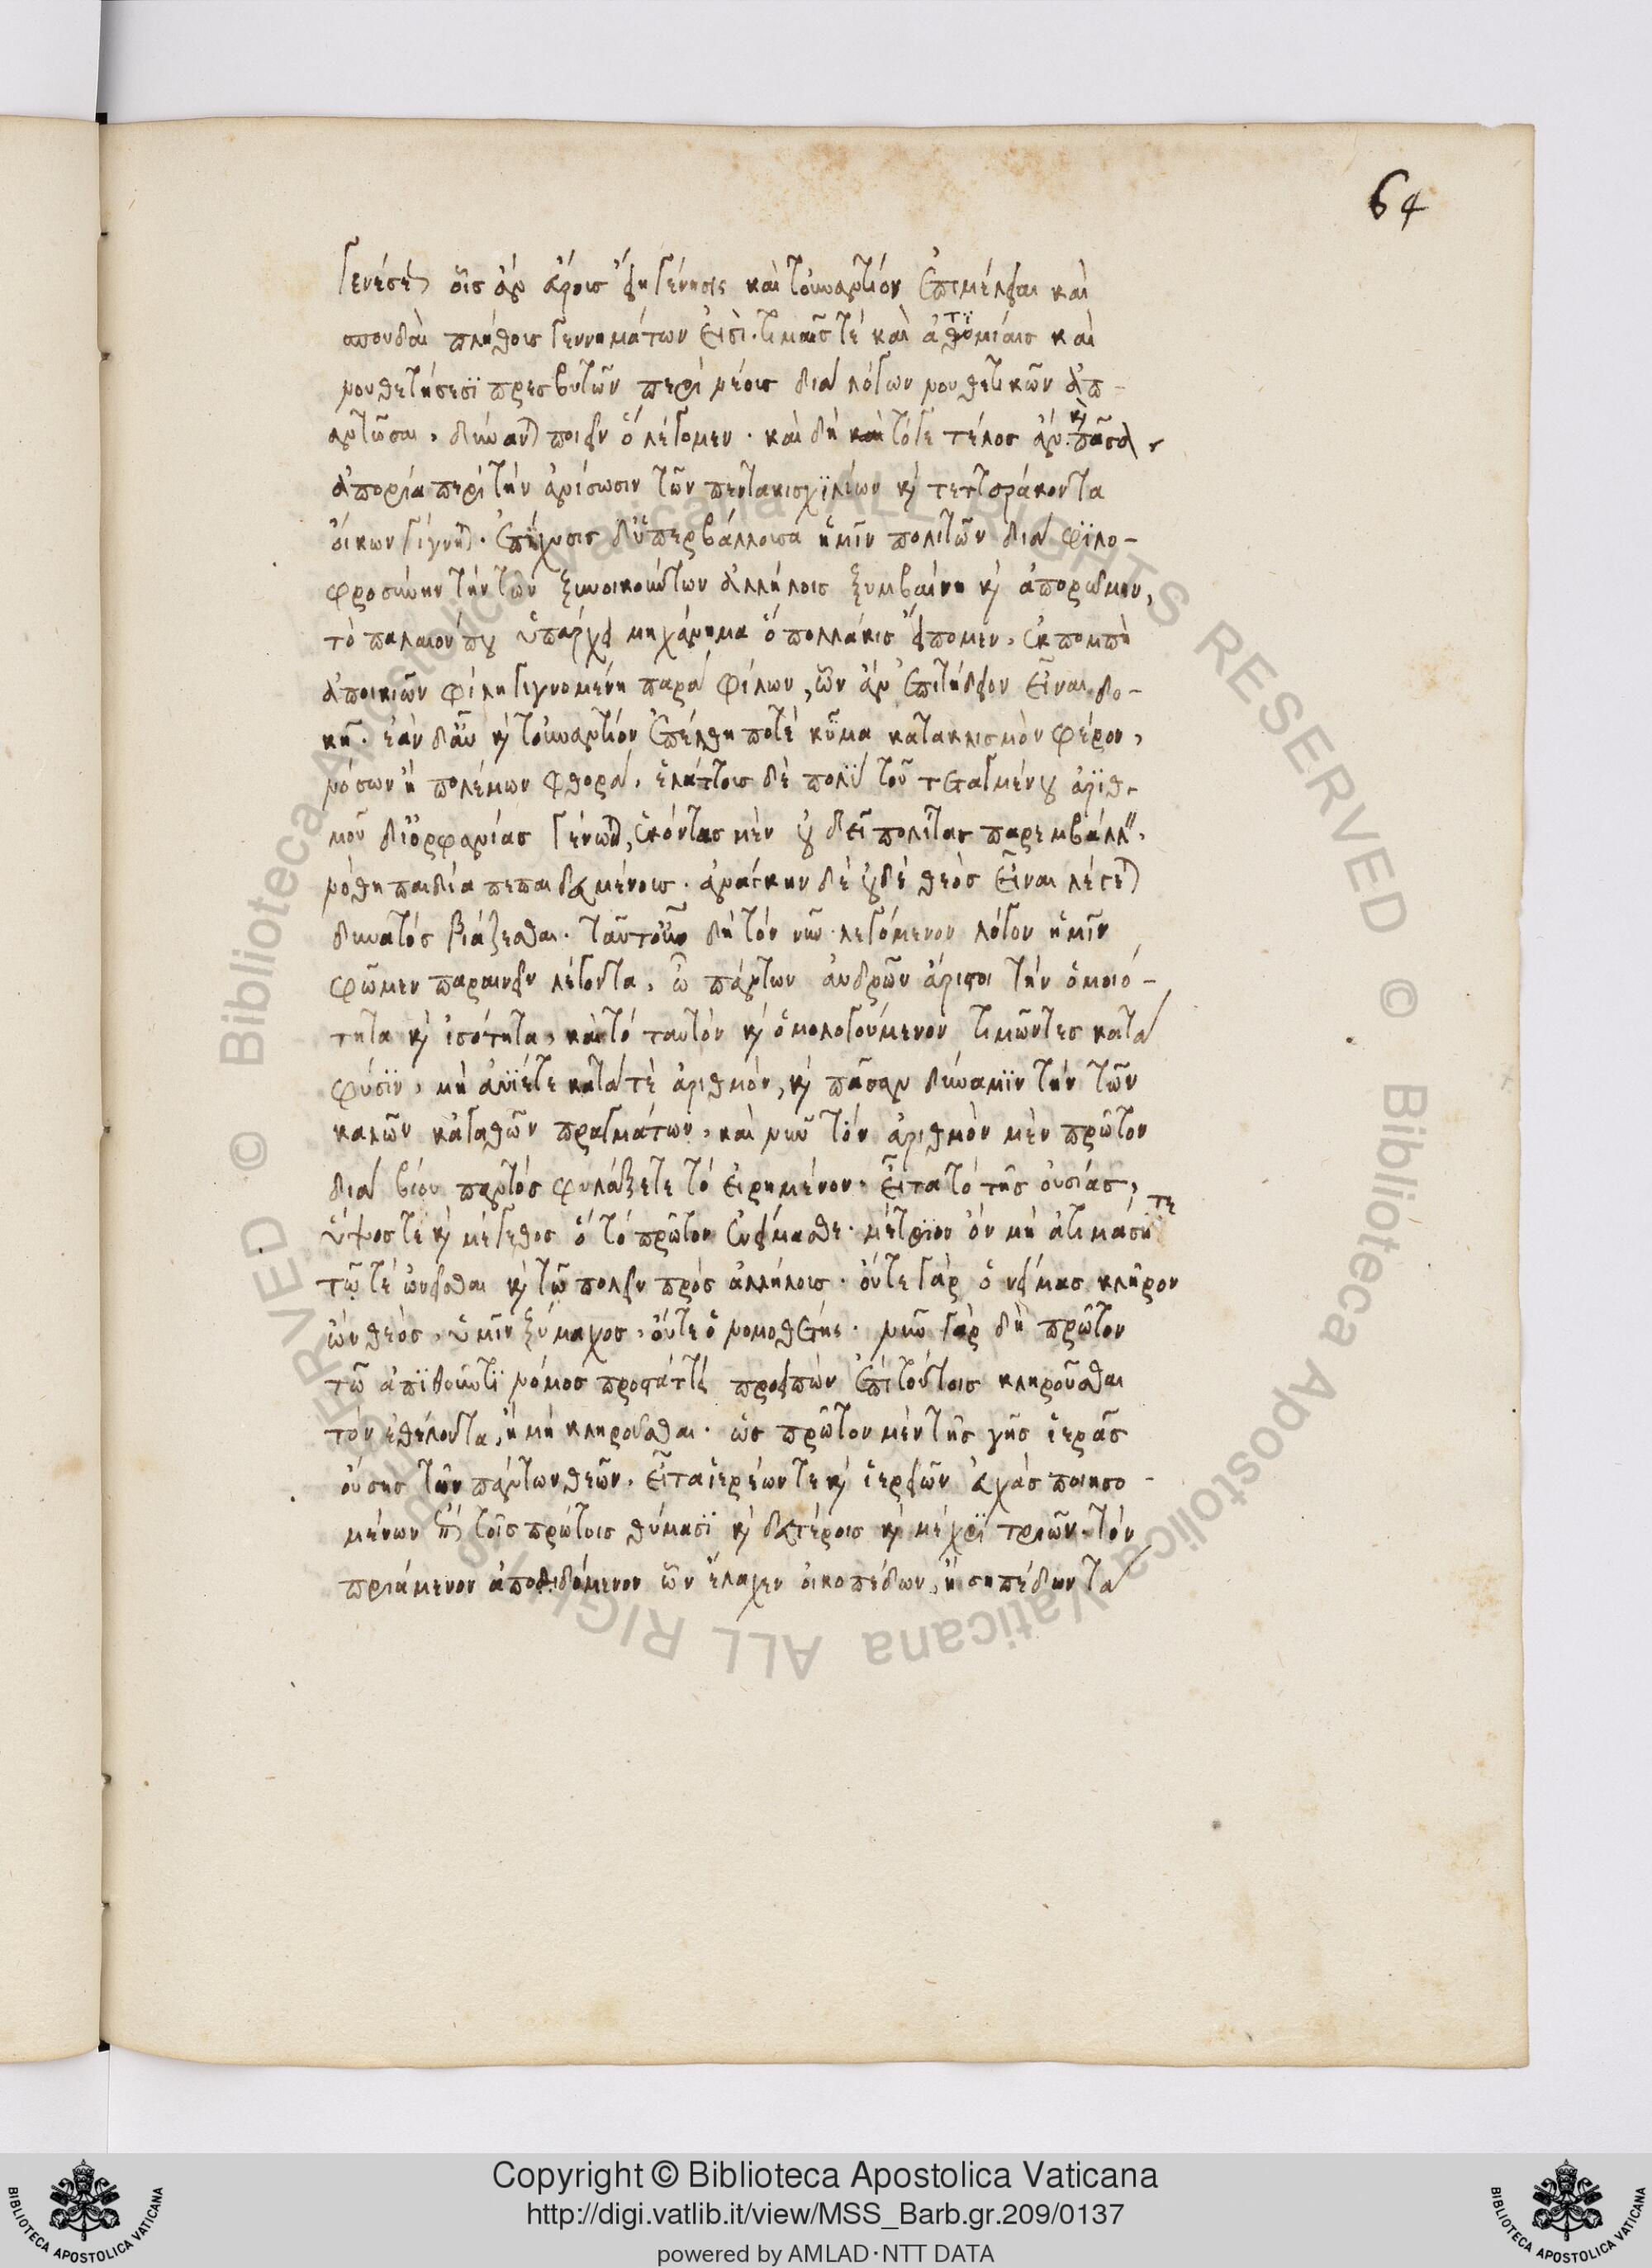 64
γενέσεως οἷς ἂν εὔροις ᾖ γέννησις καὶ τοὐναντίον ἐπιμέλειαι καὶ
σπουδαὶ πλήθοις γεννημάτων εἰσὶ. τιμαῖς τὲ καὶ ἀτϊμίαις καὶ
νουθετήσεσϊ πρεσβυτῶν περὶ νέοις διὰ λόγων νουθετικῶν ἀπ-
αντῶσαι, δύνανται ποιεῖν ὃ λέγομεν. καὶ δὴ καὶ τόγε τέλος ἂν. κ πᾶσα
ἀπορία περὶ τὴν ἀνίσωσιν τῶν πεντακισχϊλίων κ τετταράκοντα
οἴκων γίγνηται. ἐπίχυσις δ' ὑπερβάλλοισα ἡμῖν πολιτῶν διὰ φϊλο-
φροσύνην τὴν τῶν ξυνοικούντων ἀλλήλοις ξυμβαίνῃ κ ἀπορῶμεν,
τὸ παλαιόν που ὑπάρχει μηχάνημα ὃ πολλάκις εἴπομεν, ἐκπομπὴ
ἀποικιῶν φίλη γιγνομένη παρὰ φίλων, ὧν ἂν ἐπιτήδειον εἶναι δο-
κῇ. ἐὰν δ' αὖ κ τοὐναντίον ἐπέλθῃ ποτὲ κῦμα κατακλισμὸν φέρον,
νόσων ἢ πολέμων φθορὰ. ἐλάττοις δὲ πολϊὺ τοῦ τεταγμένου ἀριθ-
μοῦ δι' ὀρφανίας γένωνται, ἑκόντας μὲν οὐ δεῖ πολίτας παρεμβάλλειν
νόθῃ παιδίᾳ πεπαιδευμένοις. ἀνάγκην δὲ οὐδὲ θεὸς εἶναι λέγεται
δυνατός βιάζεσθαι. ταῦτ' οὖν δὴ τὸν νῦν λεγόμενον λόγον ἡμῖν
φῶμεν παραινεῖν λέγοντα. ὦ πάντων ἀνδρῶν ἄριστοι τὴν ὁμοιό-
τητα κ ἰσότητα, καὶ τὸ ταυτὸν κ ὁμολογούμενον τιμῶντες κατὰ
φύσϊν, μὴ ἀνίετε κατὰ τὲ ἀριθμὸν, κ πᾶσαν δύναμϊν τὴν τῶν
καλῶν κἀγαθῶν πραγμάτων, καὶ νῦν τὸν ἀριθμὸν μὲν πρῶτον
διὰ βίου παντός φυλάξετε τὸ εἰρημένον. εἶτα τὸ τῆς οὐσίας,
ὕψος τὲ κ μέγεθος ὃ τὸ πρῶτον ἐνείμασθε. μέτρϊον ὂν μὴ ἀτιμάσητε
τῷ τὲ ὠνεῖσθαι κ τῷ πολεῖν πρὸς ἀλλήλοις. οὔτε γὰρ ὁ νείμας κλῆρον
ὢν θεὸς, ὑμῖν ξύμαχος, οὔτε ὁ νομοθέτης. νῦν γὰρ δὴ πρῶτον
τῷ ἀπϊθοῦντϊ νόμος προστάττει προειπὼν ἐπὶ τούτοις κληροῦσθαι
τὸν ἐθέλοντα, ἢ μὴ κληροῦσθαι. ὡς πρῶτον μὲν τῆς γῆς ἱερᾶς
οὔσης τῶν πάντων θεῶν. εἶτα ἱερέων τε κ ἱερειῶν εὐχὰς ποιησο-
μένων ἐπὶ τοῖς πρώτοις θύμασϊ κ δευτέροις κ μέχρϊ τριῶν. τὸν
πριάμενον ἀποδιδόμενον ὧν ἔλαχεν οἰκοπέδων, ἢ γηπέδων τὰ
Copyright © Biblioteca Apostolica Vaticana
http://digi.vatlib.it/view/MSS_Barb.gr.209/0137
powered by AMLAD·NTT DATA